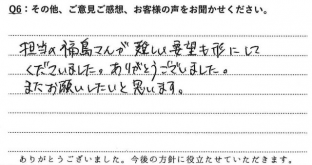 Q6：その他、ご意見ご感想、お客様の声をお聞かせください。
担当の福島さんが難しい要望も形にして
くださいました。ありがとうございました。
またお願いしたいと思います。
ありがとうございました。今後の方針に役立たせていただきます。